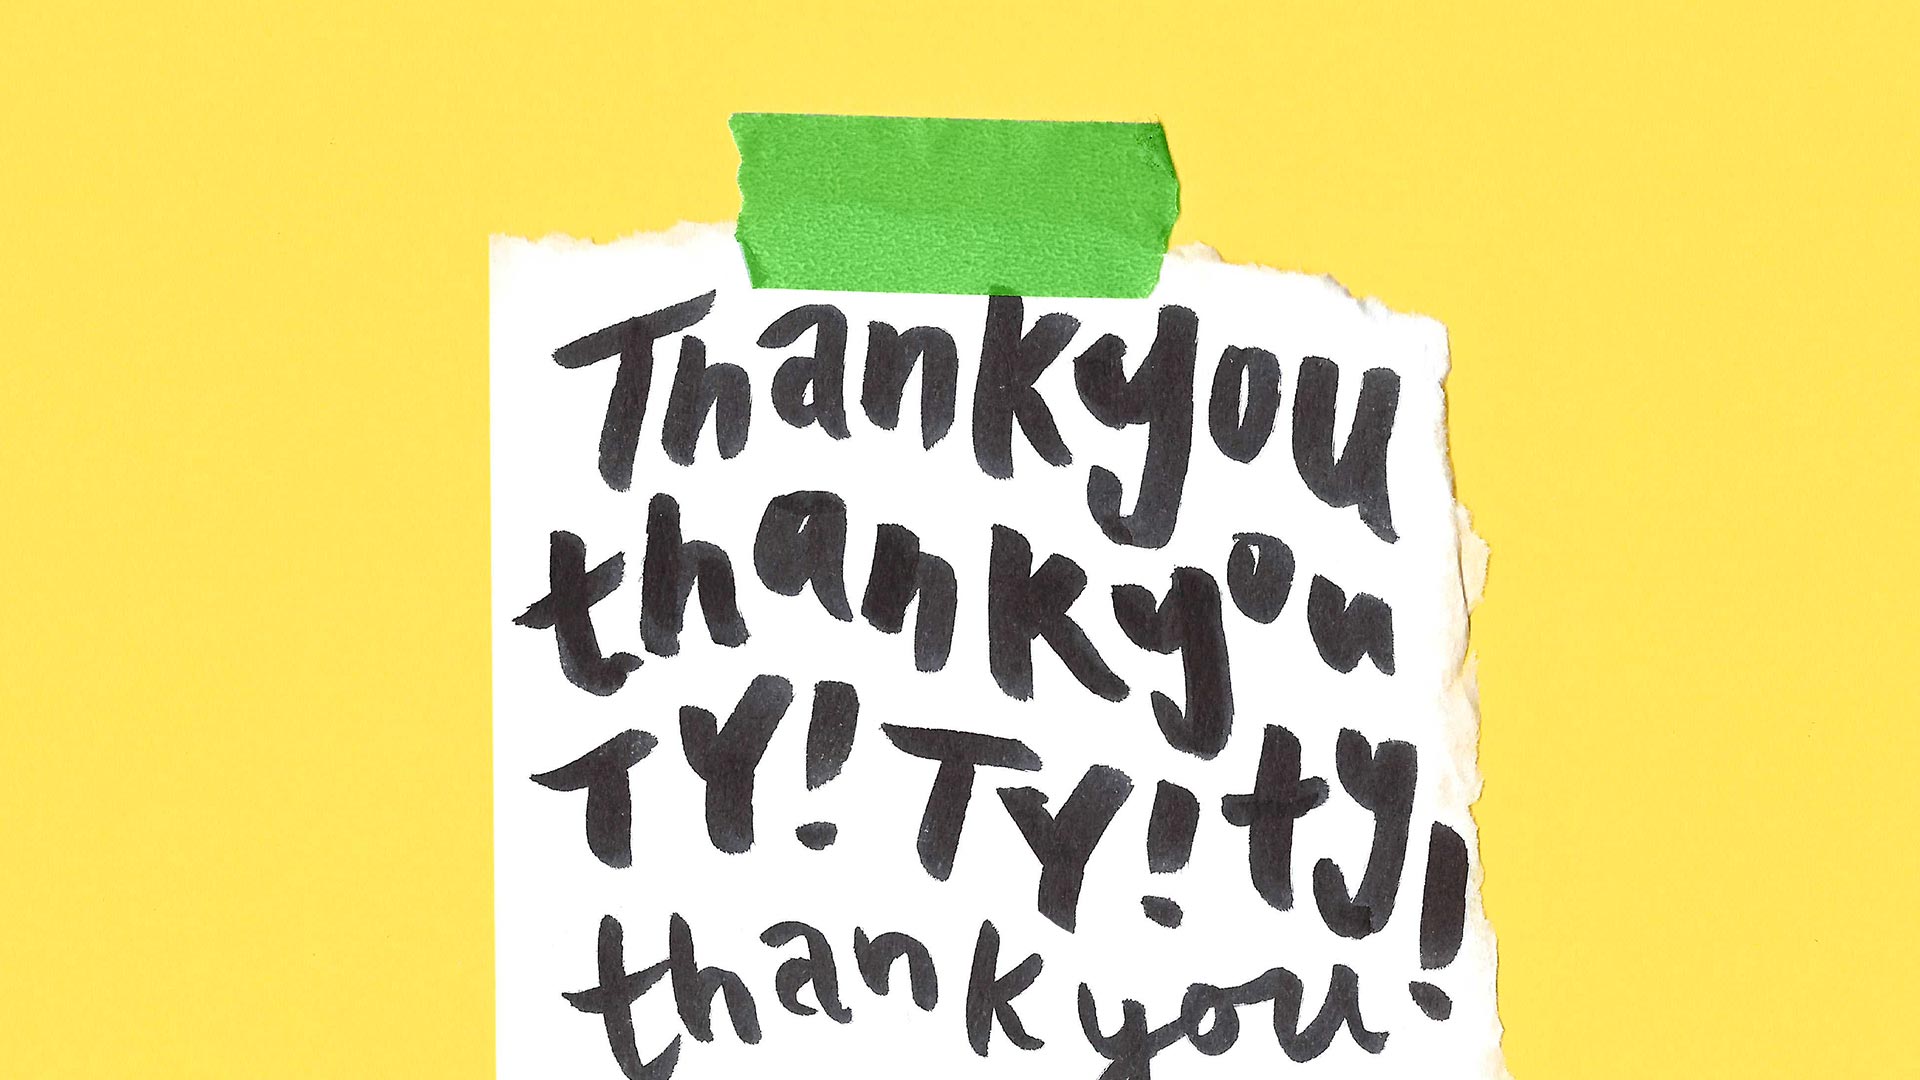 Thank you
thank you
TY! TY! ty!
thank you